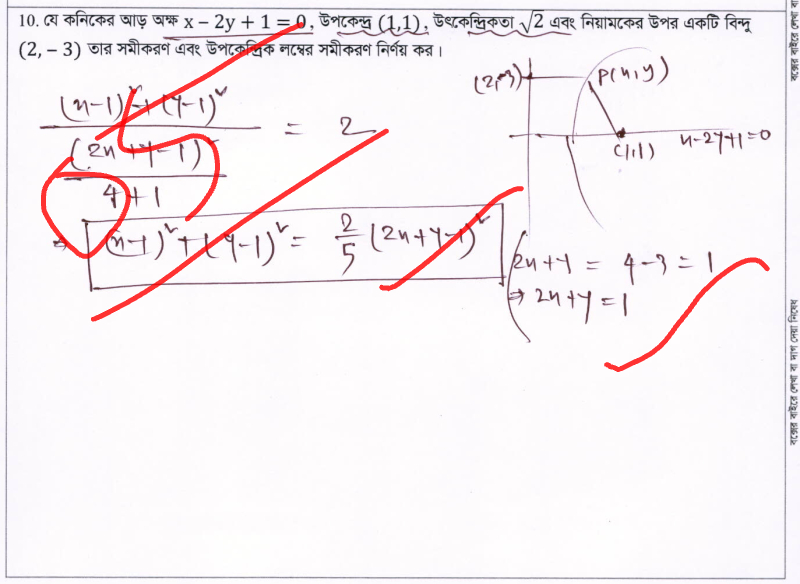 10. যে কনিকের আড় অক্ষ x – 2y + 1 = 0, উপকেন্দ্র (1,1), উৎকেন্দ্রিকতা √2 এবং নিয়ামকের উপর একটি বিন্দু
(2, – 3) তার সমীকরণ এবং উপকেন্দ্রিক লম্বের সমীকরণ নির্ণয় কর।
(2,-3) P(x,y)
(1,1) x-2y+1=0
(x-1)² + (y-1)²
= 2
(2x+y-1)²
4+1
⇒ (x-1)² + (y-1)² = 2/5 (2x+y-1)²
2x+y = 4-3 = 1
⇒ 2x+y = 1
বক্সের বাইরে লেখা বা দাগ দেয়া নিষেধ